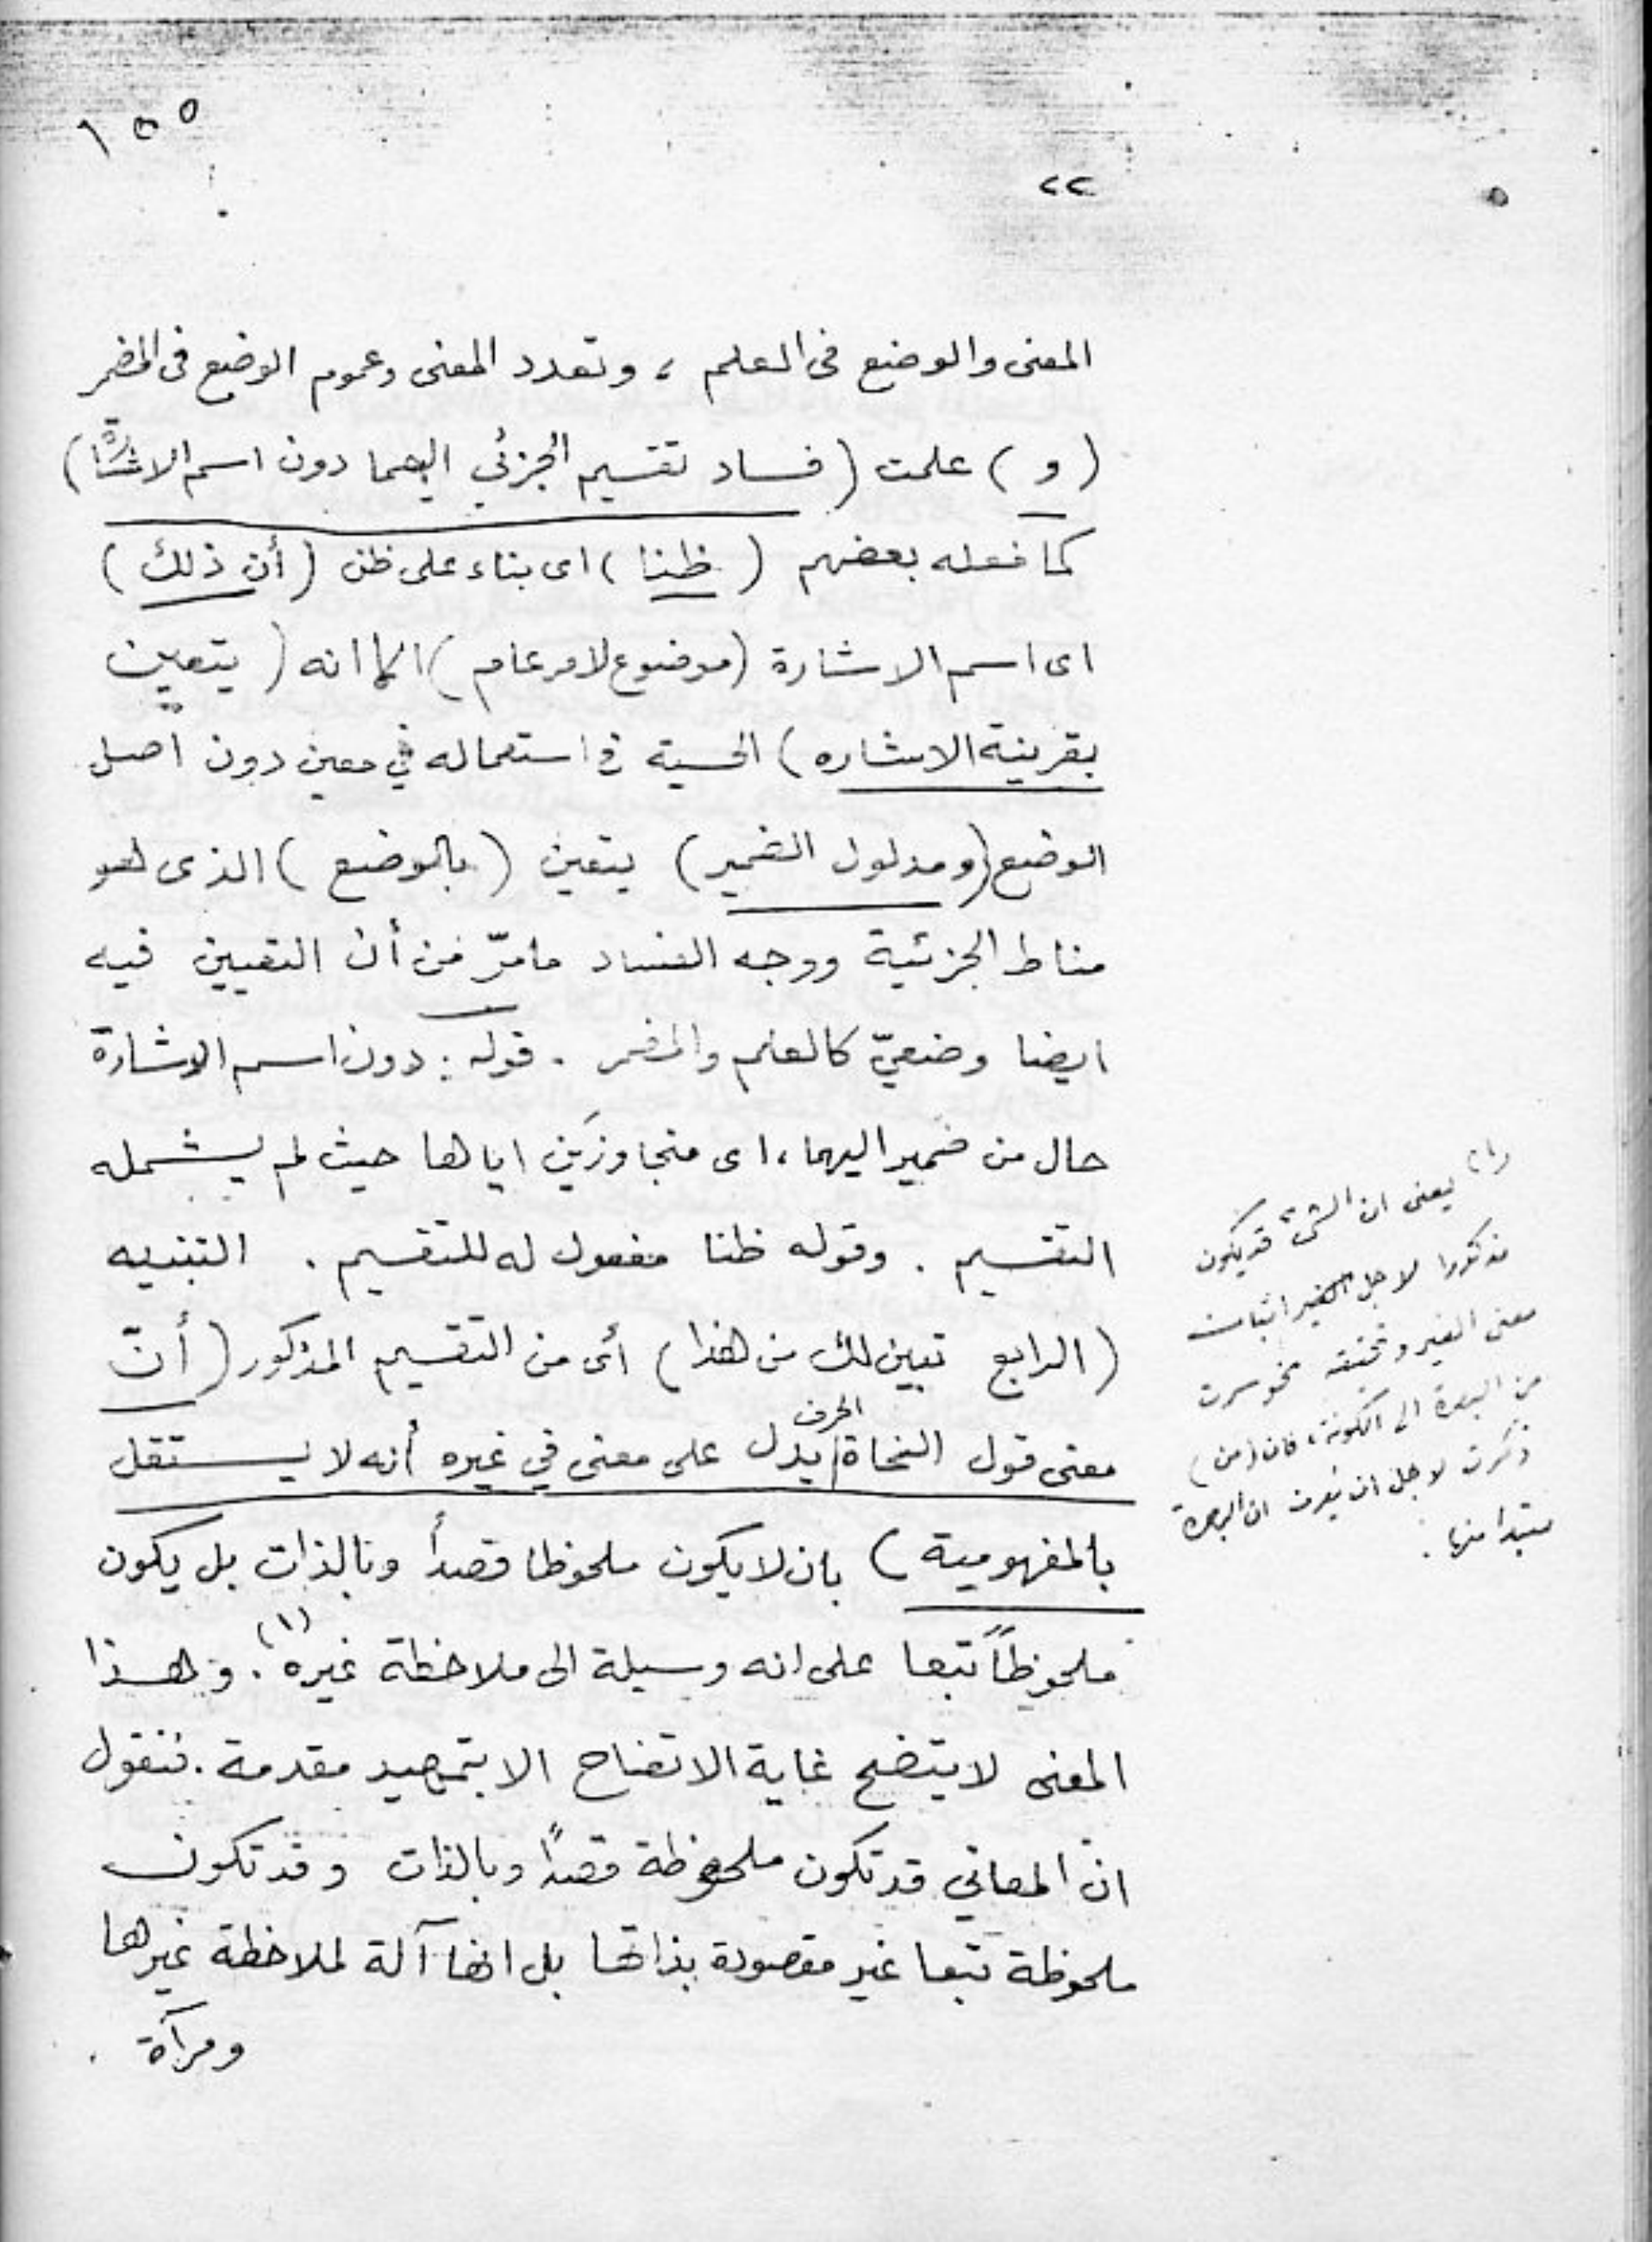 ١٥٥
٢٢
المعنى والوضع فى العلم ، وتعدد المعنى وعموم الوضع فى المضمر
( و ) علمت ( فساد تقسيم الجزئي اليهما دون اسم الاشارة )
كما فعله بعضهم ( ظنا ) اى بناء على ظن ( أن ذلك )
اى اسم الاشارة ( موضوع لامر عام ) الا انه ( يتعين
بقرينة الاشاره ) الحسية فى استعماله في معين دون اصل
الوضع ( ومدلول الضمير ) يتعين ( بالوضع ) الذى هو
مناط الجزئية ووجه الفساد مامرّ من أن التعيين فيه
ايضا وضعيّ كالعلم والمضمر . قوله : دون اسم الاشارة
حال من ضمير اليهما ، اى متجاوزَين اياها حيث لم يشمله
التقسيم . وقوله ظنا مفعول له للتقسيم . التنبيه
( الرابع تبين لك من هذا ) أى من التقسيم المذكور ( أنّ
معنى قول النحاة الحرف يدل على معنى في غيره أنه لا يستقل
بالمفهومية ) بان لا يكون ملحوظا قصداً وبالذات بل يكون
ملحوظاً تبعا على انه وسيلة الى ملاحظة غيره (١) . وهذا
المعنى لا يتضح غاية الاتضاح الا بتمهيد مقدمة . فنقول
ان المعاني قد تكون ملحوظة قصدًا وبالذات وقد تكون
ملحوظة تبعا غير مقصودة بذاتها بل انها آلة لملاحظة غيرها
ومرآة .
(١) يعنى ان الشىء قد يكون
مذكورا لاجل الغير اثبات
معنى الغير و نحو سرت
من البصرة الى الكوفة ، فان (من)
ذكرت لاجل ان يعرف ان البصرة
مبتدا منها .